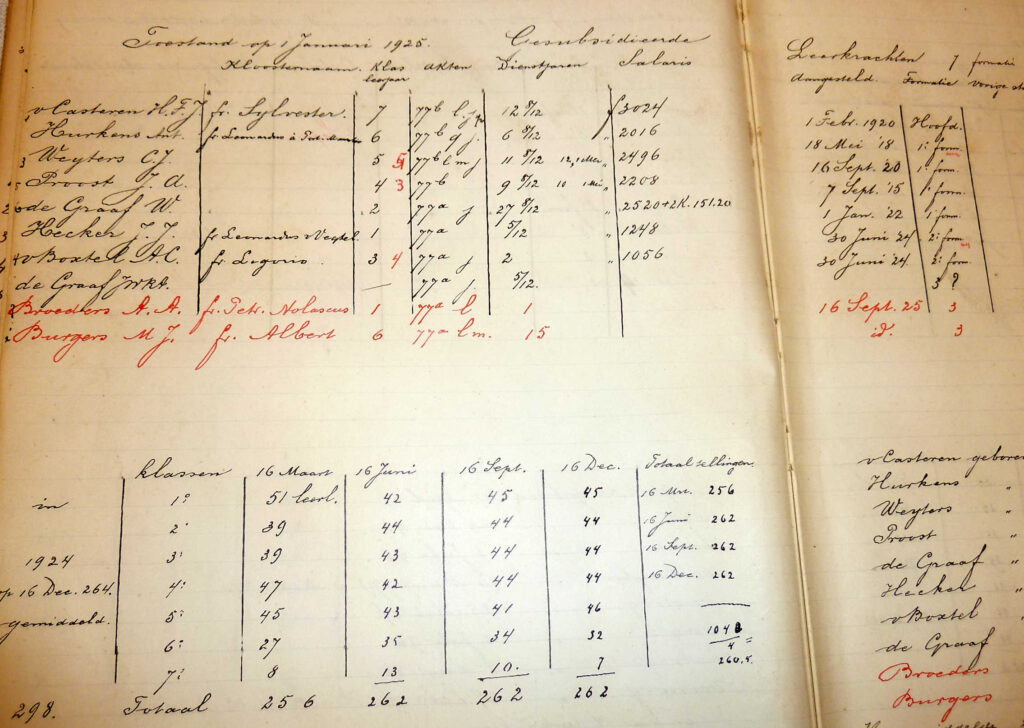 Toestand op 1 Januari 1925. Gesubsidieerde
Kloosternaam. Klas akten Dienstjaren Salaris
leerjaar
v Casteren H.F.J. fr. Sylvester. 7 77b l. j. 12 5/12 3024
Hurkens Ant. fr. Leonardus à Port. 6 77b g j. 6 5/12 " 2016
3 Weyters C.J. 5 77b l m j 11 5/12 12, 1 Mei " 2496
Proost J. A. 4 3 77b 9 5/12 10 1 Mei " 2208
de Graaf W. 2 77a j 27 5/12 " 2520+2K. 151.20
Hecker J. J. fr Leonardus v Veghel. 1 77a 5/12 " 1248
v Boxtel A.C. fr. Logorio. 3 4 77a j 2 " 1056
de Graaf — 77a j. 5/12.
Broeders A. A. fr. Petr. Nolascus 1 77a l 1
Burgers M J. fr. Albert 6 77a l m. 15
Leerkrachten 7 formatie
aangesteld. Formatie vorige
1 Febr. 1920 Hoofd.
18 Mei '18 1e form.
16 Sept. '20 1e form.
7 Sept. '15 1e form.
1 Jan. '22 1 form.
30 Juni '24 2e form
30 Juni '24. 2e form.
3 ?
16 Sept. 25 3
id. 3
klassen 16 Maart 16 Juni 16 Sept. 16 Dec. Totaal tellingen.
in 1e 51 leerl. 42 45 45 16 Mrt. 256
2e 39 44 44 44 16 Juni 262
1924 3e 39 43 44 44 16 Sept. 262
op 16 Dec. 264. 4e 47 42 44 44 16 Dec. 262
gemiddeld. 5e 45 43 41 46
6e 27 35 34 32 1042
4 =
7e 8 13 10. 7 260.5.
298. Totaal 256 262 262 262
v Casteren geboren
Hurkens "
Weyters "
Proost "
de Graaf "
Hecker "
v Boxtel "
de Graaf
Broeders
Burgers